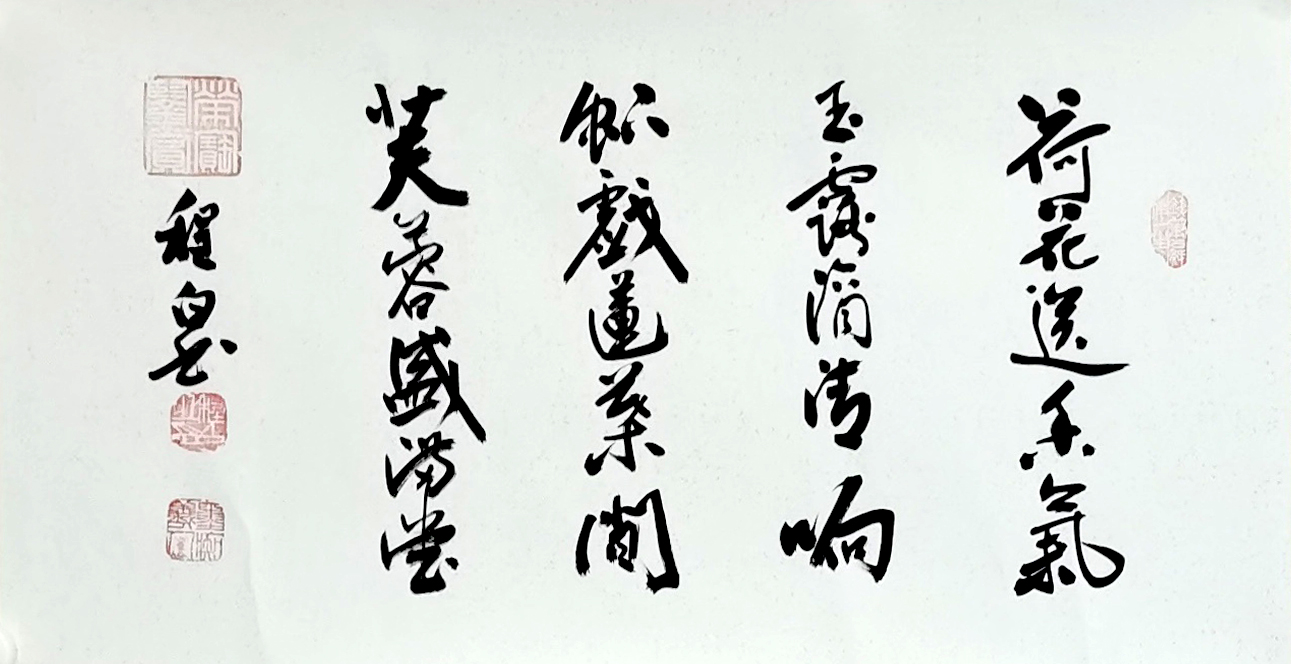 荷花送香氣
玉露滴清响
戲蓮葉間
芙蓉盛满堂
程白书